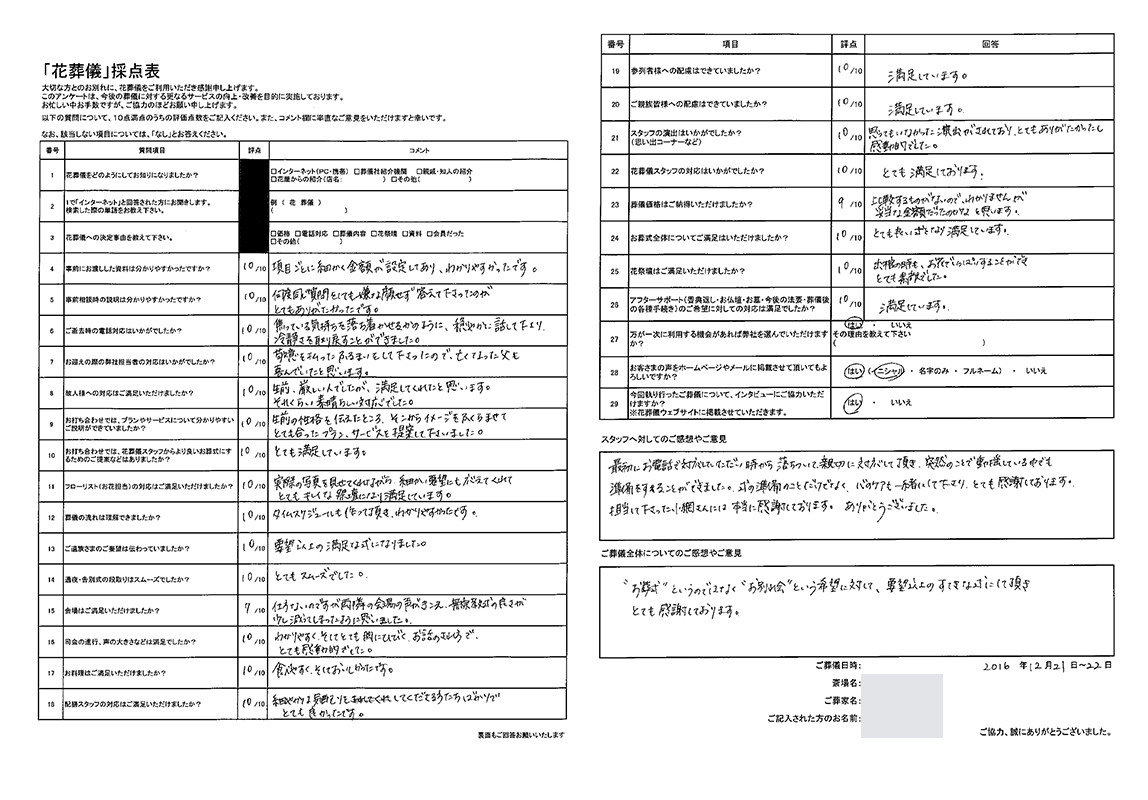 「花葬儀」採点表
大切な方とのお別れに、花葬儀をご利用いただき感謝申し上げます。
このアンケートは、今後の葬儀に対する更なるサービスの向上・改善を目的に実施しております。
お忙しい中お手数ですが、ご協力のほどお願い申し上げます。
以下の質問について、10点満点のうちの評価点数をご記入ください。また、コメント欄に率直なご意見をいただけますと幸いです。
なお、該当しない項目については、「なし」とお答えください。
番号 質問項目 評点 コメント
1 花葬儀をどのようにしてお知りになりましたか？ □インターネット(PC・携帯) □葬儀社紹介機関 □親戚・知人の紹介
□花屋からの紹介(店名: ) □その他( )
2 1で「インターネット」と回答された方にお聞きします。
検索した際の単語をお教え下さい。 例 ( 花 葬儀 )
( )
3 花葬儀への決定事由を教えて下さい。 □価格 □電話対応 □葬儀内容 □花祭壇 □資料 □会員だった
□その他( )
4 事前にお渡しした資料は分かりやすかったですか？ 10/10 項目ごとに細かく金額が設定してあり、わかりやすかったです。
5 事前相談時の説明は分かりやすかったですか？ 10/10 何度同じ質問をしても嫌な顔せず答えて下さったのが
とてもありがたかったです。
6 ご逝去時の電話対応はいかがでしたか？ 10/10 焦っている気持ちを落ち着かせるかのように、穏やかに話して下さり、
冷静さを取り戻すことができました。
7 お迎えの際の弊社担当者の対応はいかがでしたか？ 10/10 敬意を払ったふるまいをして下さったので、亡くなった父も
喜んでいたと思います。
8 故人様への対応はご満足いただけましたか？ 10/10 生前、厳しい人でしたが、満足してくれたと思います。
それくらい素晴らしい対応でした。
9 お打ち合わせでは、プランやサービスについて分かりやすい
ご説明ができていましたか？ 10/10 生前の性格を伝えたところ、そこからイメージをふくらませて
とても合ったプラン、サービスを提案して下さいました。
10 お打ち合わせでは、花葬儀スタッフからより良いお葬式にす
るためのご提案などはありましたか？ 10/10 とても満足しています。
11 フローリスト(お花担当)の対応はご満足いただけましたか？ 10/10 実際の写真を見せてくれながら、細かい要望にも応えてくれて
とてもキレイな祭壇になり満足しています。
12 葬儀の流れは理解できましたか？ 10/10 タイムスケジュールも作って頂き、わかりやすかったです。
13 ご遺族さまのご要望は伝わっていましたか？ 10/10 要望以上の満足な式になりました。
14 通夜・告別式の段取りはスムーズでしたか？ 10/10 とてもスムーズでした。
15 会場はご満足いただけましたか？ 7/10 仕方ないのですが両隣の会場の声がきこえ、無宗教式の良さが
少し減ってしまったように思いました。
16 司会の進行、声の大きさなどは満足でしたか？ 10/10 わかりやすく、そしてとても胸にひびく、お話のしかたで、
とても感動的でした。
17 お料理はご満足いただけましたか？ 10/10 食べやすく、そしておいしかったです。
18 配膳スタッフの対応はご満足いただけましたか？ 10/10 細やかな気配りをしてくださる方たちばかりで
とても良かったです。
裏面もご回答お願いいたします
番号 項目 評点 回答
19 参列者様への配慮はできていましたか？ 10/10 満足しています。
20 ご親族皆様への配慮はできていましたか？ 10/10 満足しています。
21 スタッフの演出はいかがでしたか？
(思い出コーナーなど) 10/10 思ってもいなかった演出がされており、とてもありがたかったし
感動的でした。
22 花葬儀スタッフの対応はいかがでしたか？ 10/10 とても満足しております。
23 葬儀価格はご納得いただけましたか？ 9/10 比較するものがないので、わかりませんが
妥当な金額だったのかなと思います。
24 お葬式全体についてご満足はいただけましたか？ 10/10 とても良い式となり満足しています。
25 花祭壇はご満足いただけましたか？ 10/10 出棺の時も、お花でいっぱいにすることができ
とても素敵でした。
26 アフターサポート(香典返し・お仏壇・お墓・今後の法要・葬儀後
の各種手続き)のご希望に対しての対応は満足でしたか？ 10/10 満足しています。
27 万が一次に利用する機会があれば弊社を選んでいただけます
か？ はい ・ いいえ
その理由を教えて下さい
( )
28 お客さまの声をホームページやメールに掲載させて頂いてもよ
ろしいですか？ はい (イニシャル ・名字のみ・フルネーム) ・ いいえ
29 今回執り行ったご葬儀について、インタビューにご協力いただ
けますか？
※花葬儀ウェブサイトに掲載させていただきます。 はい ・ いいえ
スタッフへ対してのご感想やご意見
最初にお電話で対応していただいた時から落ちついて、親切に対応して頂き、突然のことで動揺している中でも
準備をすることができました。式の準備のことだけでなく、心のケアも一緒にして下さり、とても感謝しております。
担当して下さった小網さんには本当に感謝しております。ありがとうございました。
ご葬儀全体についてのご感想やご意見
"お葬式"というのではなく"お別れ会"という希望に対して、要望以上のすてきな式にして頂き
とても感謝しております。
ご葬儀日時: 2016 年12月21日～22日
斎場名:
ご葬家名:
ご記入された方のお名前:
ご協力、誠にありがとうございました。